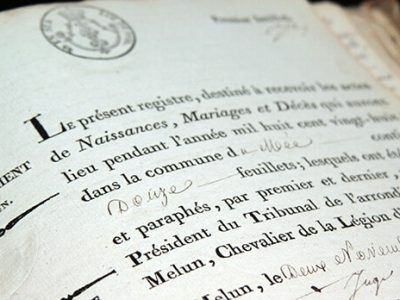 LE présent registre, destiné à recevoir les actes
de Naissances, Mariages et Décès qui auront
lieu pendant l'année mil huit cent vingt-
dans la commune d
Douze feuillets; lesquels ont été
et paraphés, par premier et dernier,
Président du Tribunal de l'arrondi
Melun, Chevalier de la Légion d'
Melun, le Deux Novem
Juge
MENT
N.